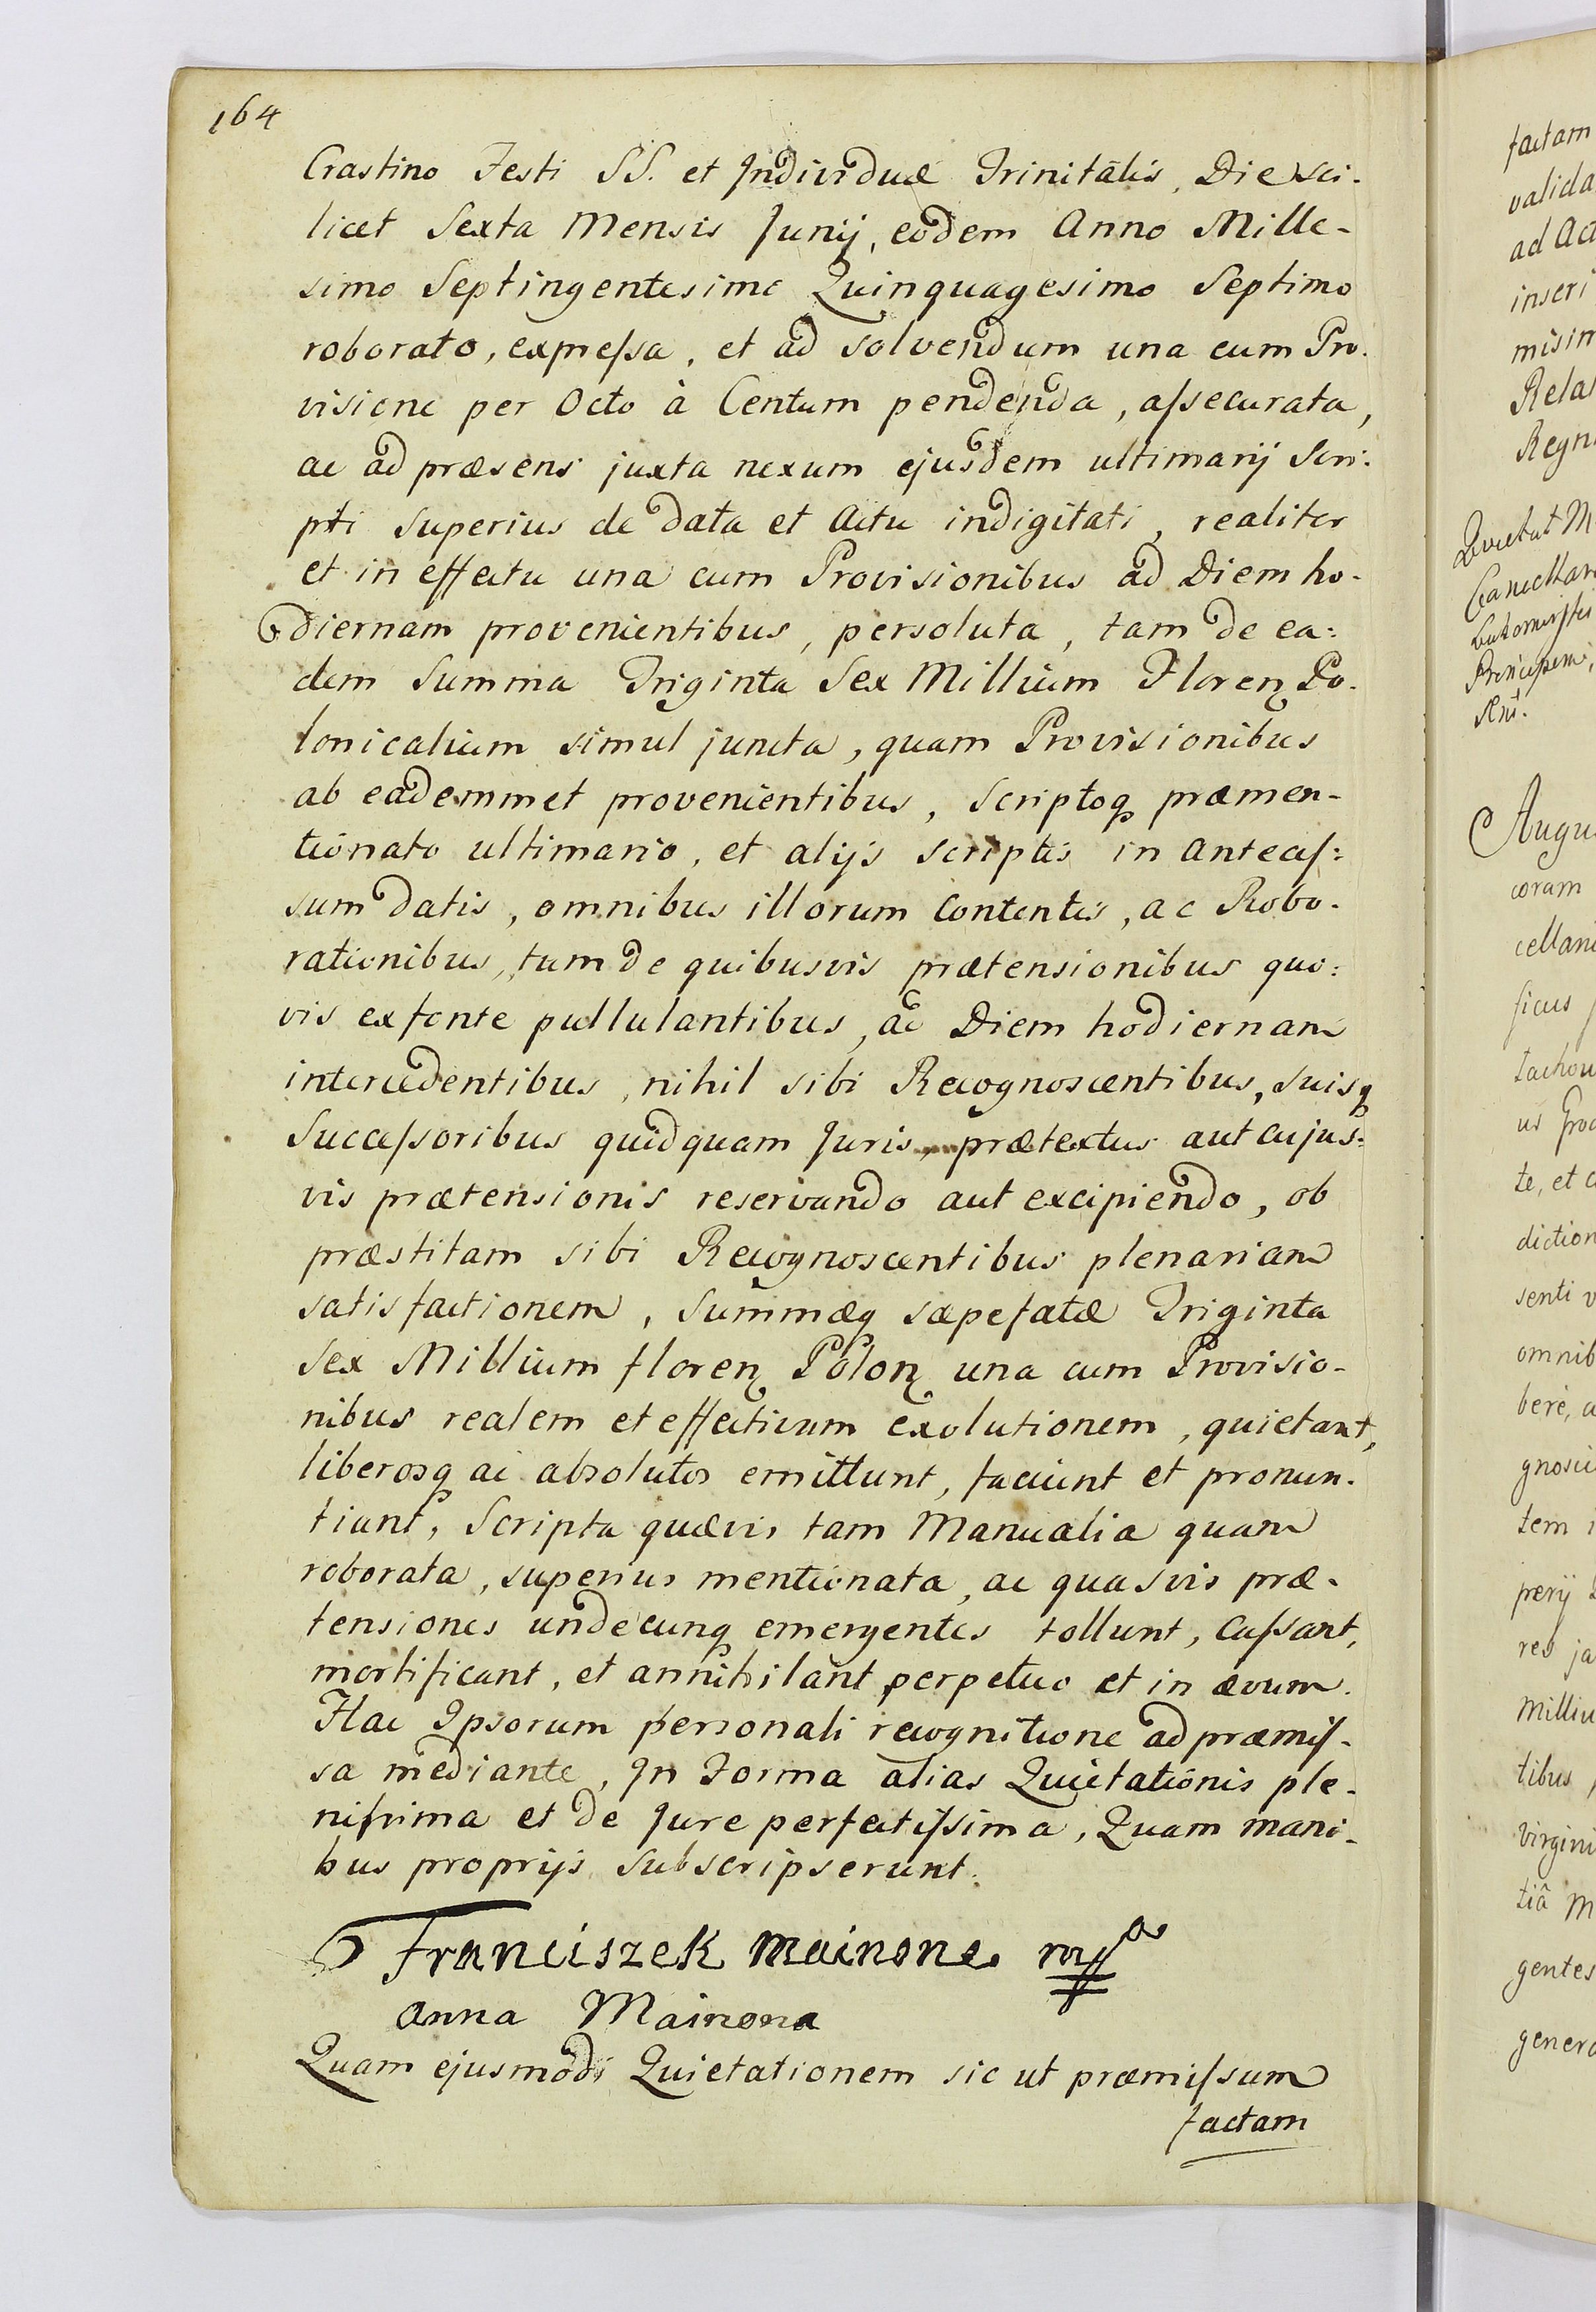 164
Crastino Festi SS. et Individuæ Trinitatis, Die sci-
licet Sexta Mensis Junij, eodem Anno Mille-
simo Septingentesimo Quinquagesimo Septimo
roborato, expressa, et ad solvendum una cum Pro-
visione per Octo à Centum pendenda, assecurata,
ac ad præsens juxta nexum ejusdem ultimarij Scri-
pti superius de data et Actu indigitati, realiter
et in effectu una cum Provisionibus ad Diem ho-
diernam provenientibus, persoluta, tam de ea=
dem Summa Triginta Sex Millium Floren Po-
lonicalium simul juncta, quam Provisionibus
ab eademmet provenientibus, Scriptoq præmen-
tionato ultimario, et alijs scriptis in anteces=
sum datis, omnibus illorum Contentis, ac Robo-
rationibus, tum de quibusvis prætensionibus quo=
vis ex fonte pullulantibus, ac Diem hodiernam
intercedentibus, nihil sibi Recognoscentibus, suisq
Successoribus quidquam Juris, prætextus aut cujus=
vis prætensionis reservando aut excipiendo, ob
præstitam sibi Recognoscentibus plenariam
satisfactionem, Summæq sæpefatæ Triginta
Sex Millium floren Polon una cum Provisio-
nibus realem et effectivam exolutionem, quietant,
liberosq ac absolutos emittunt, faciunt et pronun-
tiant, Scripta quævis tam Manualia quam
roborata, superius mentionata, ac quasvis præ-
tensiones undecunq emergentes tollunt, Cassant,
mortificant, et annihilant perpetuo et in ævum.
Hac Ipsorum personali recognitione ad præmis-
sa mediante, In Forma alias Quietationis ple-
nissima et de Jure perfectissima, Quam mani-
bus proprijs subscripserunt.
Franciszek Mainone mp
Anna Mainona
Quam ejusmodi Quietationem sic ut præmissum
factam
factam
valida
ad Act
inseri
misim
Relat
Regni
Quietat M
Cancellar
Principem,
Augus
coram
cellani
ficus
tachow
us Groc
te, et c
diction
senti v
omnib
berè, a
gnosci
tem
perij
res ja
Milliu
tibus
virgini
tiâ M
gentes
genera